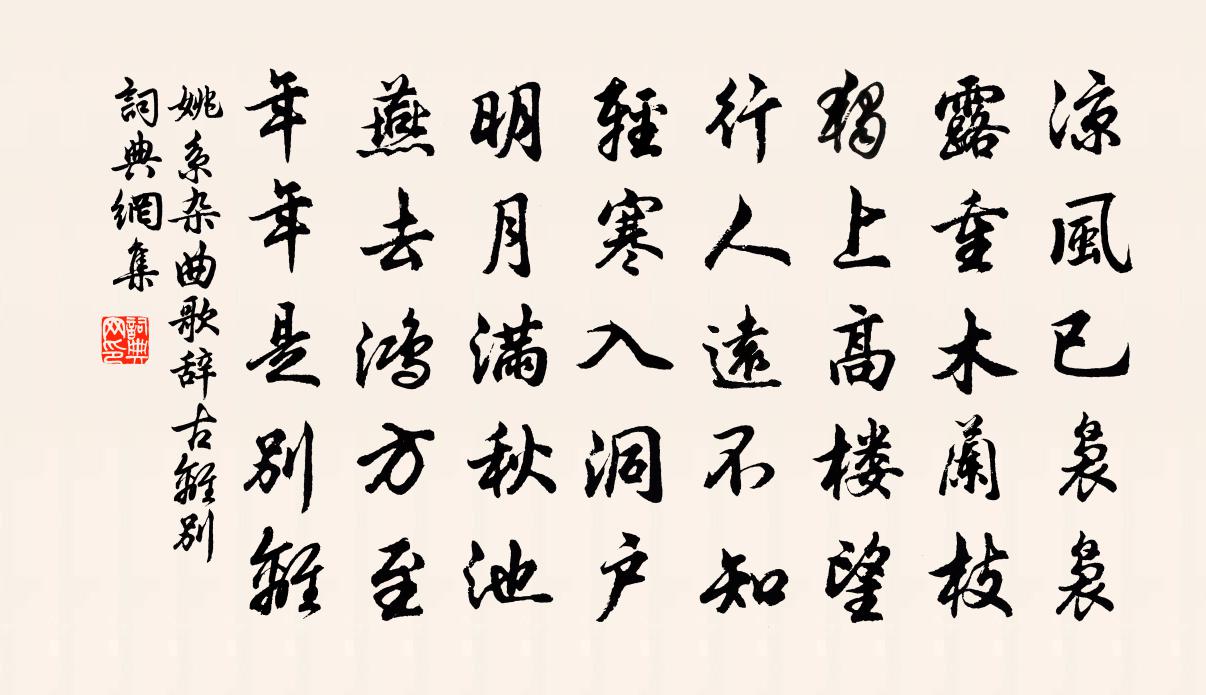 涼風已裊裊
露重木蘭枝
獨上高楼望
行人遠不知
輕寒入洞户
明月滿秋池
燕去鴻方至
年年是別離
姚系杂曲歌辞古離別
詞典網集
詞典
网印